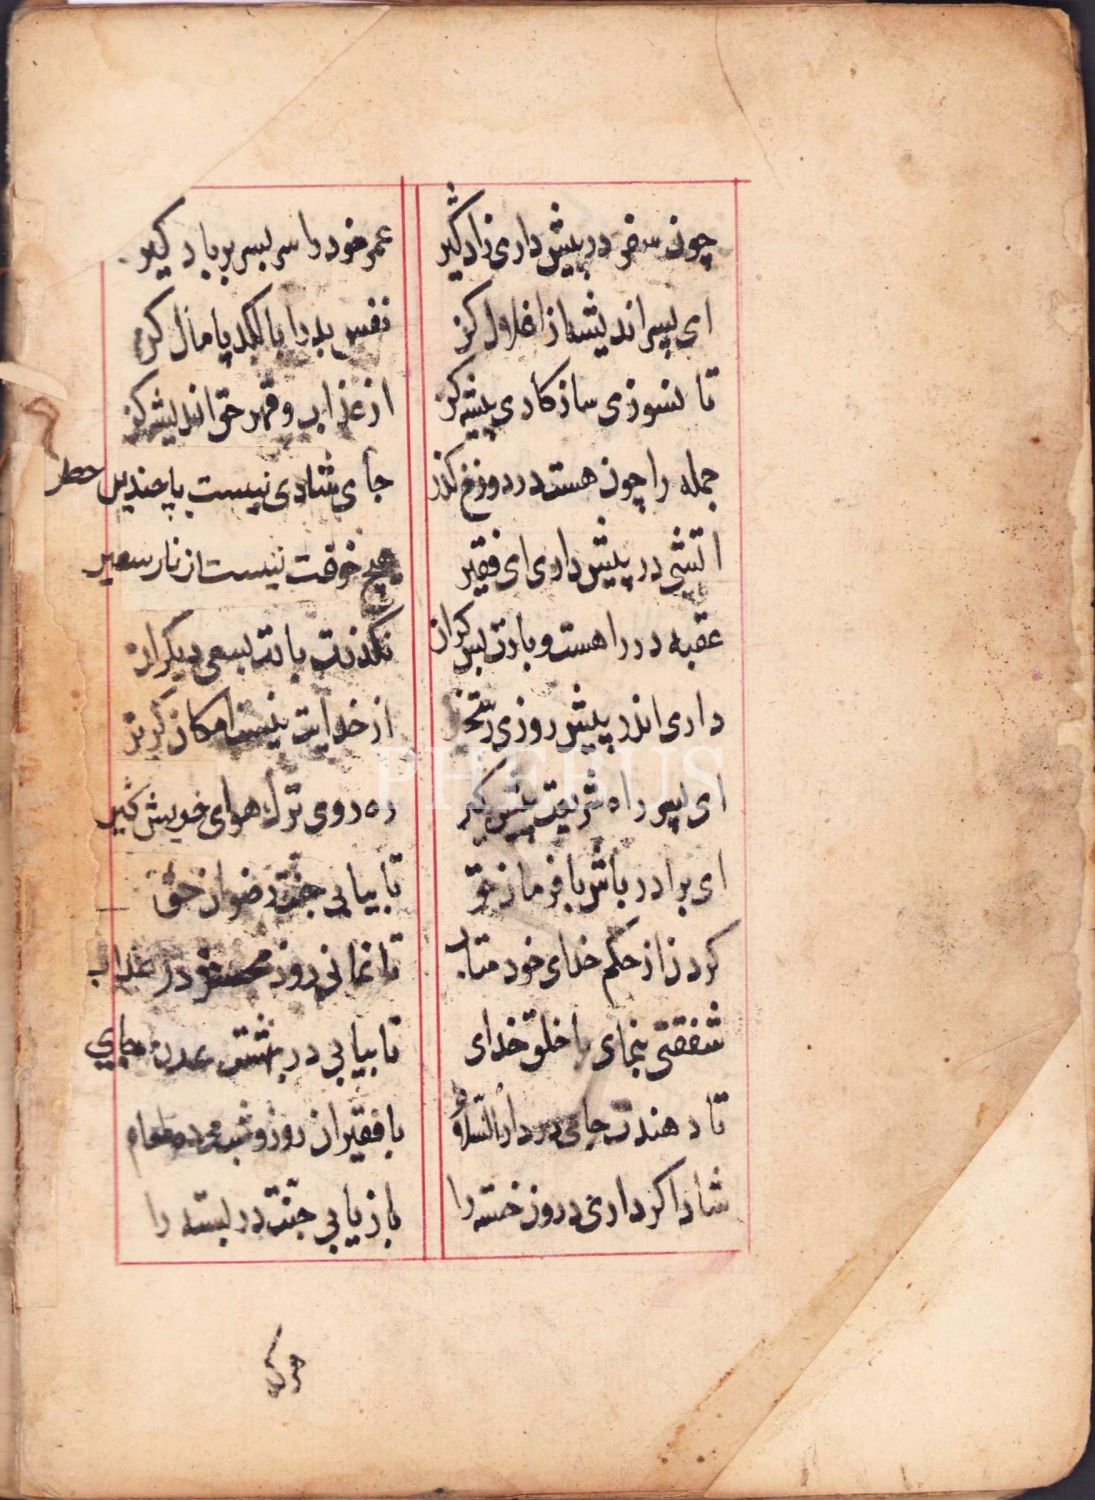 چون سفر در پیش داری زاد گیر عمر خود را سر بسر بر باد گیر
ای پسر اندیشه از اغلال کن نفس بد را با لکد پامال کن
تا نسوزی ساز کاری پیشه کن از عذاب و قهر حق اندیشه کن
جمله را چون هست در دوزخ کذر جای شادی نیست با چندین خطر
اتشی در پیش داری ای فقیر هیچ خوفت نیست از نار سعیر
عقبه در راهست و بارت بس کران نکذرت بارت بسعی دیکران
داری اندر پیش روزی رستخیز از خدایت نیست امکان کریز
ای پسر راه شریعت پیش کیر ره روی ترک هوای خویش کیر
ای برادر باش با فرمان حق تا بیابی جنت و رضوان حق
کردن از حکم خدای خود متاب تا نمانی روز محشر در عذاب
شفقتی بنمای با خلق خدای تا بیابی در بهشت عدن جای
تا دهندت جای در دار السلام با فقیران روز و شب میده طعام
شاد اکر داری درون خسته را باز یابی جنت در بسته را
هرکه
PHEBUS